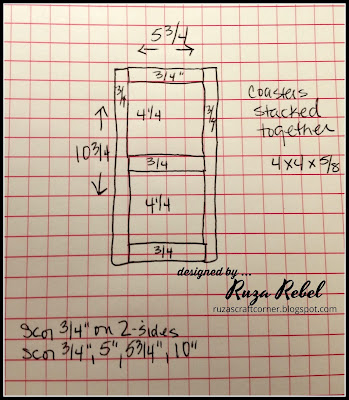 5 3/4
3/4"
3/4
4 1/4
3/4
10 3/4
3/4
4 1/4
3/4
Coasters
stacked
together
4x4x5/8
designed by ...
Ruza Rebel
ruzascraftcorner.blogspot.com
Scor 3/4" on 2-sides
Scor 3/4", 5", 5 3/4", 10"